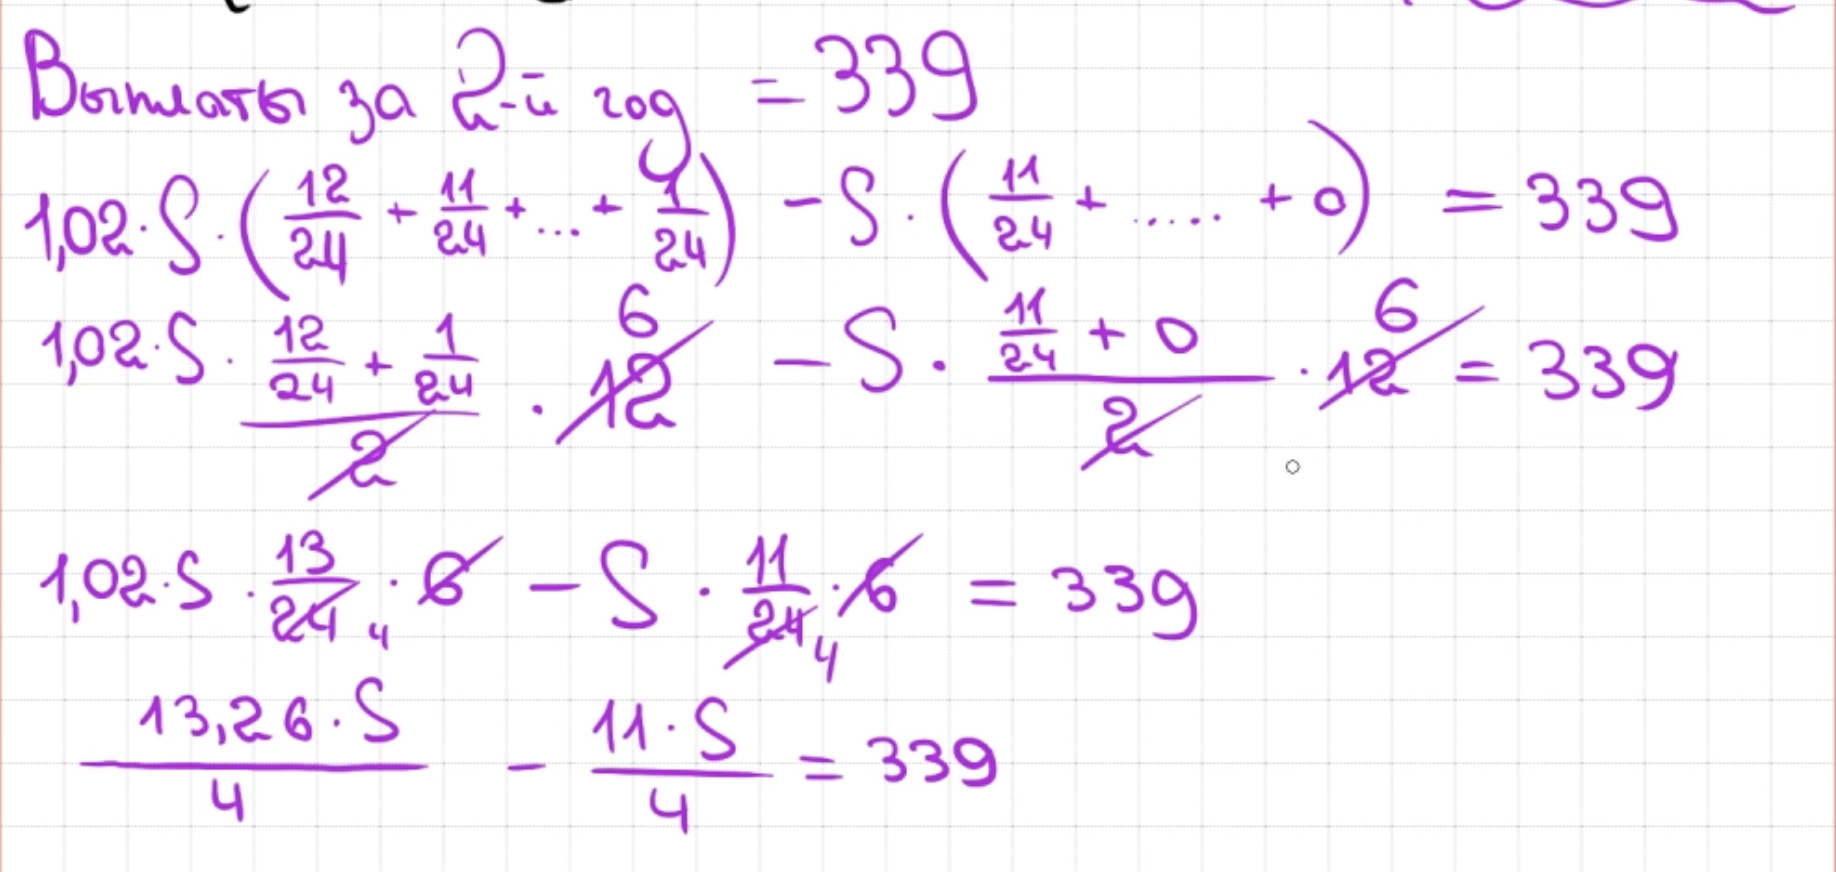 Выплаты за 2-й год = 339
1,02·S·(12/24 + 11/24 + ... + 1/24) - S·(11/24 + ..... + 0) = 339
1,02·S·(12/24 + 1/24)/2 · 12 6 - S·(11/24 + 0)/2 · 12 6 = 339
1,02·S·13/24 4 · 6 - S·11/24 4 · 6 = 339
13,26·S/4 - 11·S/4 = 339